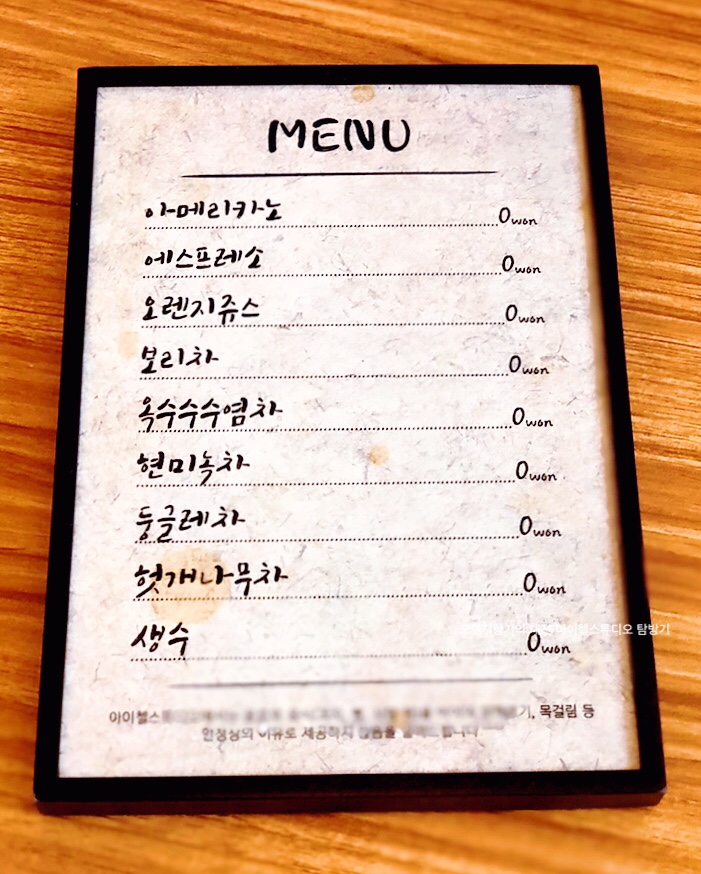 MENU
아메리카노 0won
에스프레소 0won
오렌지쥬스 0won
보리차 0won
옥수수수염차 0won
현미녹차 0won
둥글레차 0won
헛개나무차 0won
생수 0won
탐방기
목걸림 등
이유로 제공하지